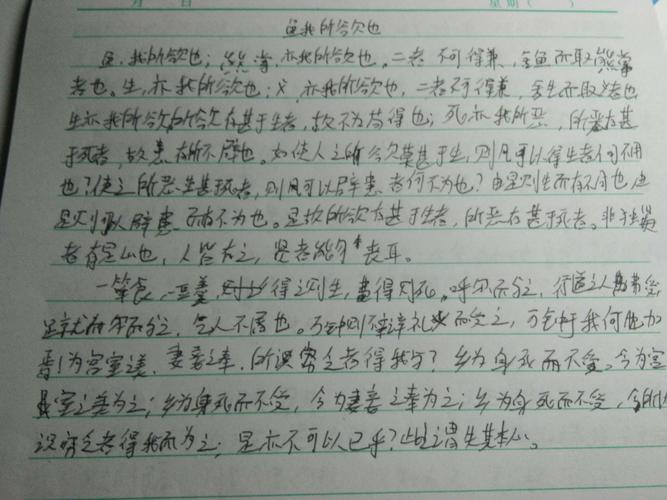 月 日 星期( )
鱼我所欲也
鱼，我所欲也；熊掌，亦我所欲也，二者不可得兼，舍鱼而取熊掌
者也。生，亦我所欲也；义，亦我所欲也，二者不可得兼，舍生而取义者也
生亦我所欲所欲有甚于生者，故不为苟得也；死亦我所恶，所恶有甚
于死者，故患有所不辟也。如使人之所欲莫甚于生，则凡可以得生者何不用
也？使之所恶莫甚死者，则凡可以辟患者何不为也？由是则生而有不用也，由
是则可以辟患而有不为也。是故所欲有甚于生者，所恶有甚于死者。非
者有是心也，人皆有之，贤者能勿丧耳。
一箪食，一豆羹，得之则生，弗得则死。呼尔而与之，行道之人弗受
蹴尔而与之，乞人不屑也。万钟则不辩礼义而受之，万钟于我何加
焉！为宫室之美，妻妾之奉，所识穷乏者得我与？乡为身死而不受，今为宫
室之美为之；乡为身死而不受，今为妻妾之奉为之；乡为身死而不受，今所
识穷乏者得我而为之；是亦不可以已乎？此之谓失其本心。